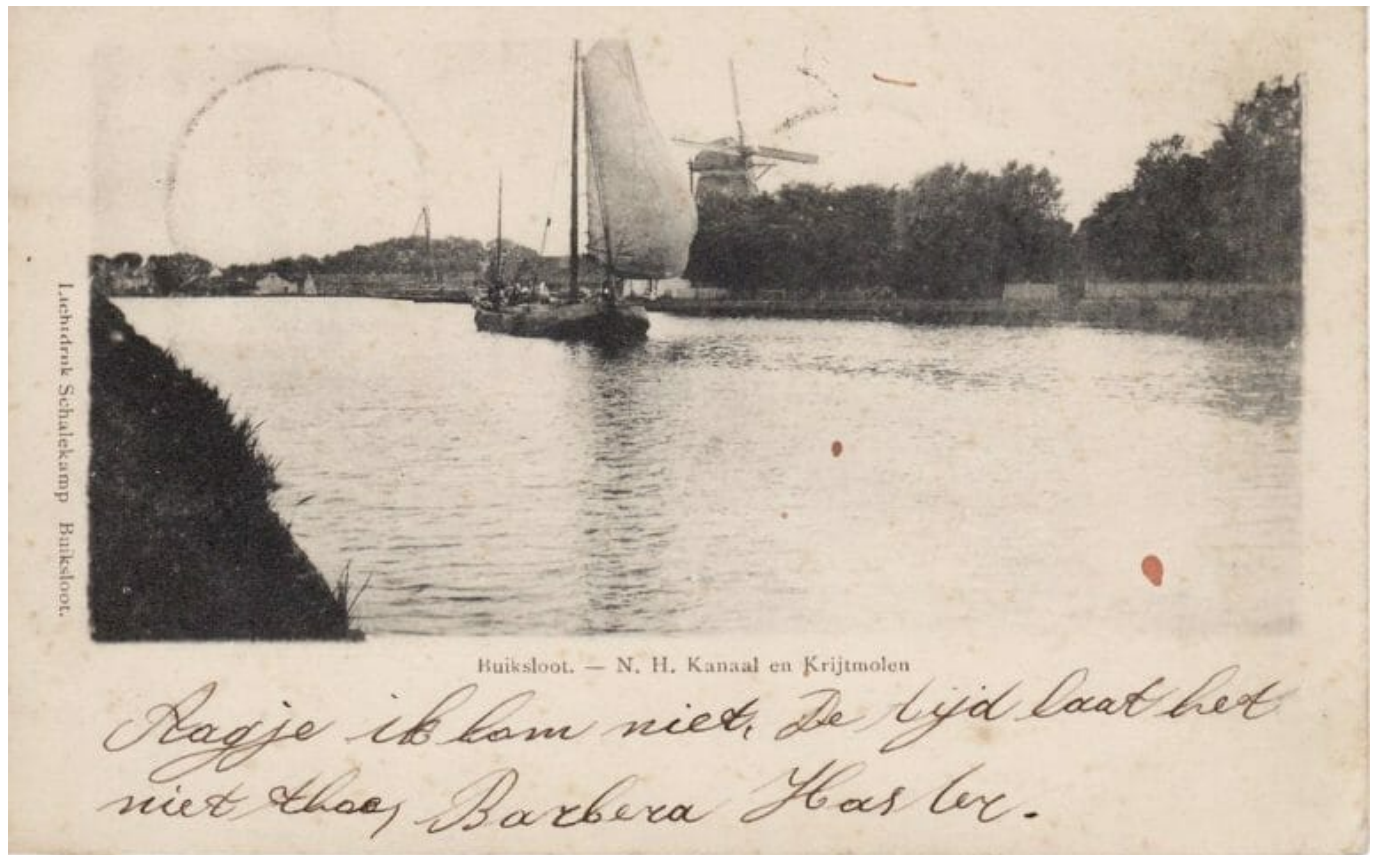 Lichtdruk Schalekamp Buiksloot.
Buiksloot. — N. H. Kanaal en Krijtmolen
Aagje ik kom niet, De tijd laat het
niet thoe, Barbera Hasler.